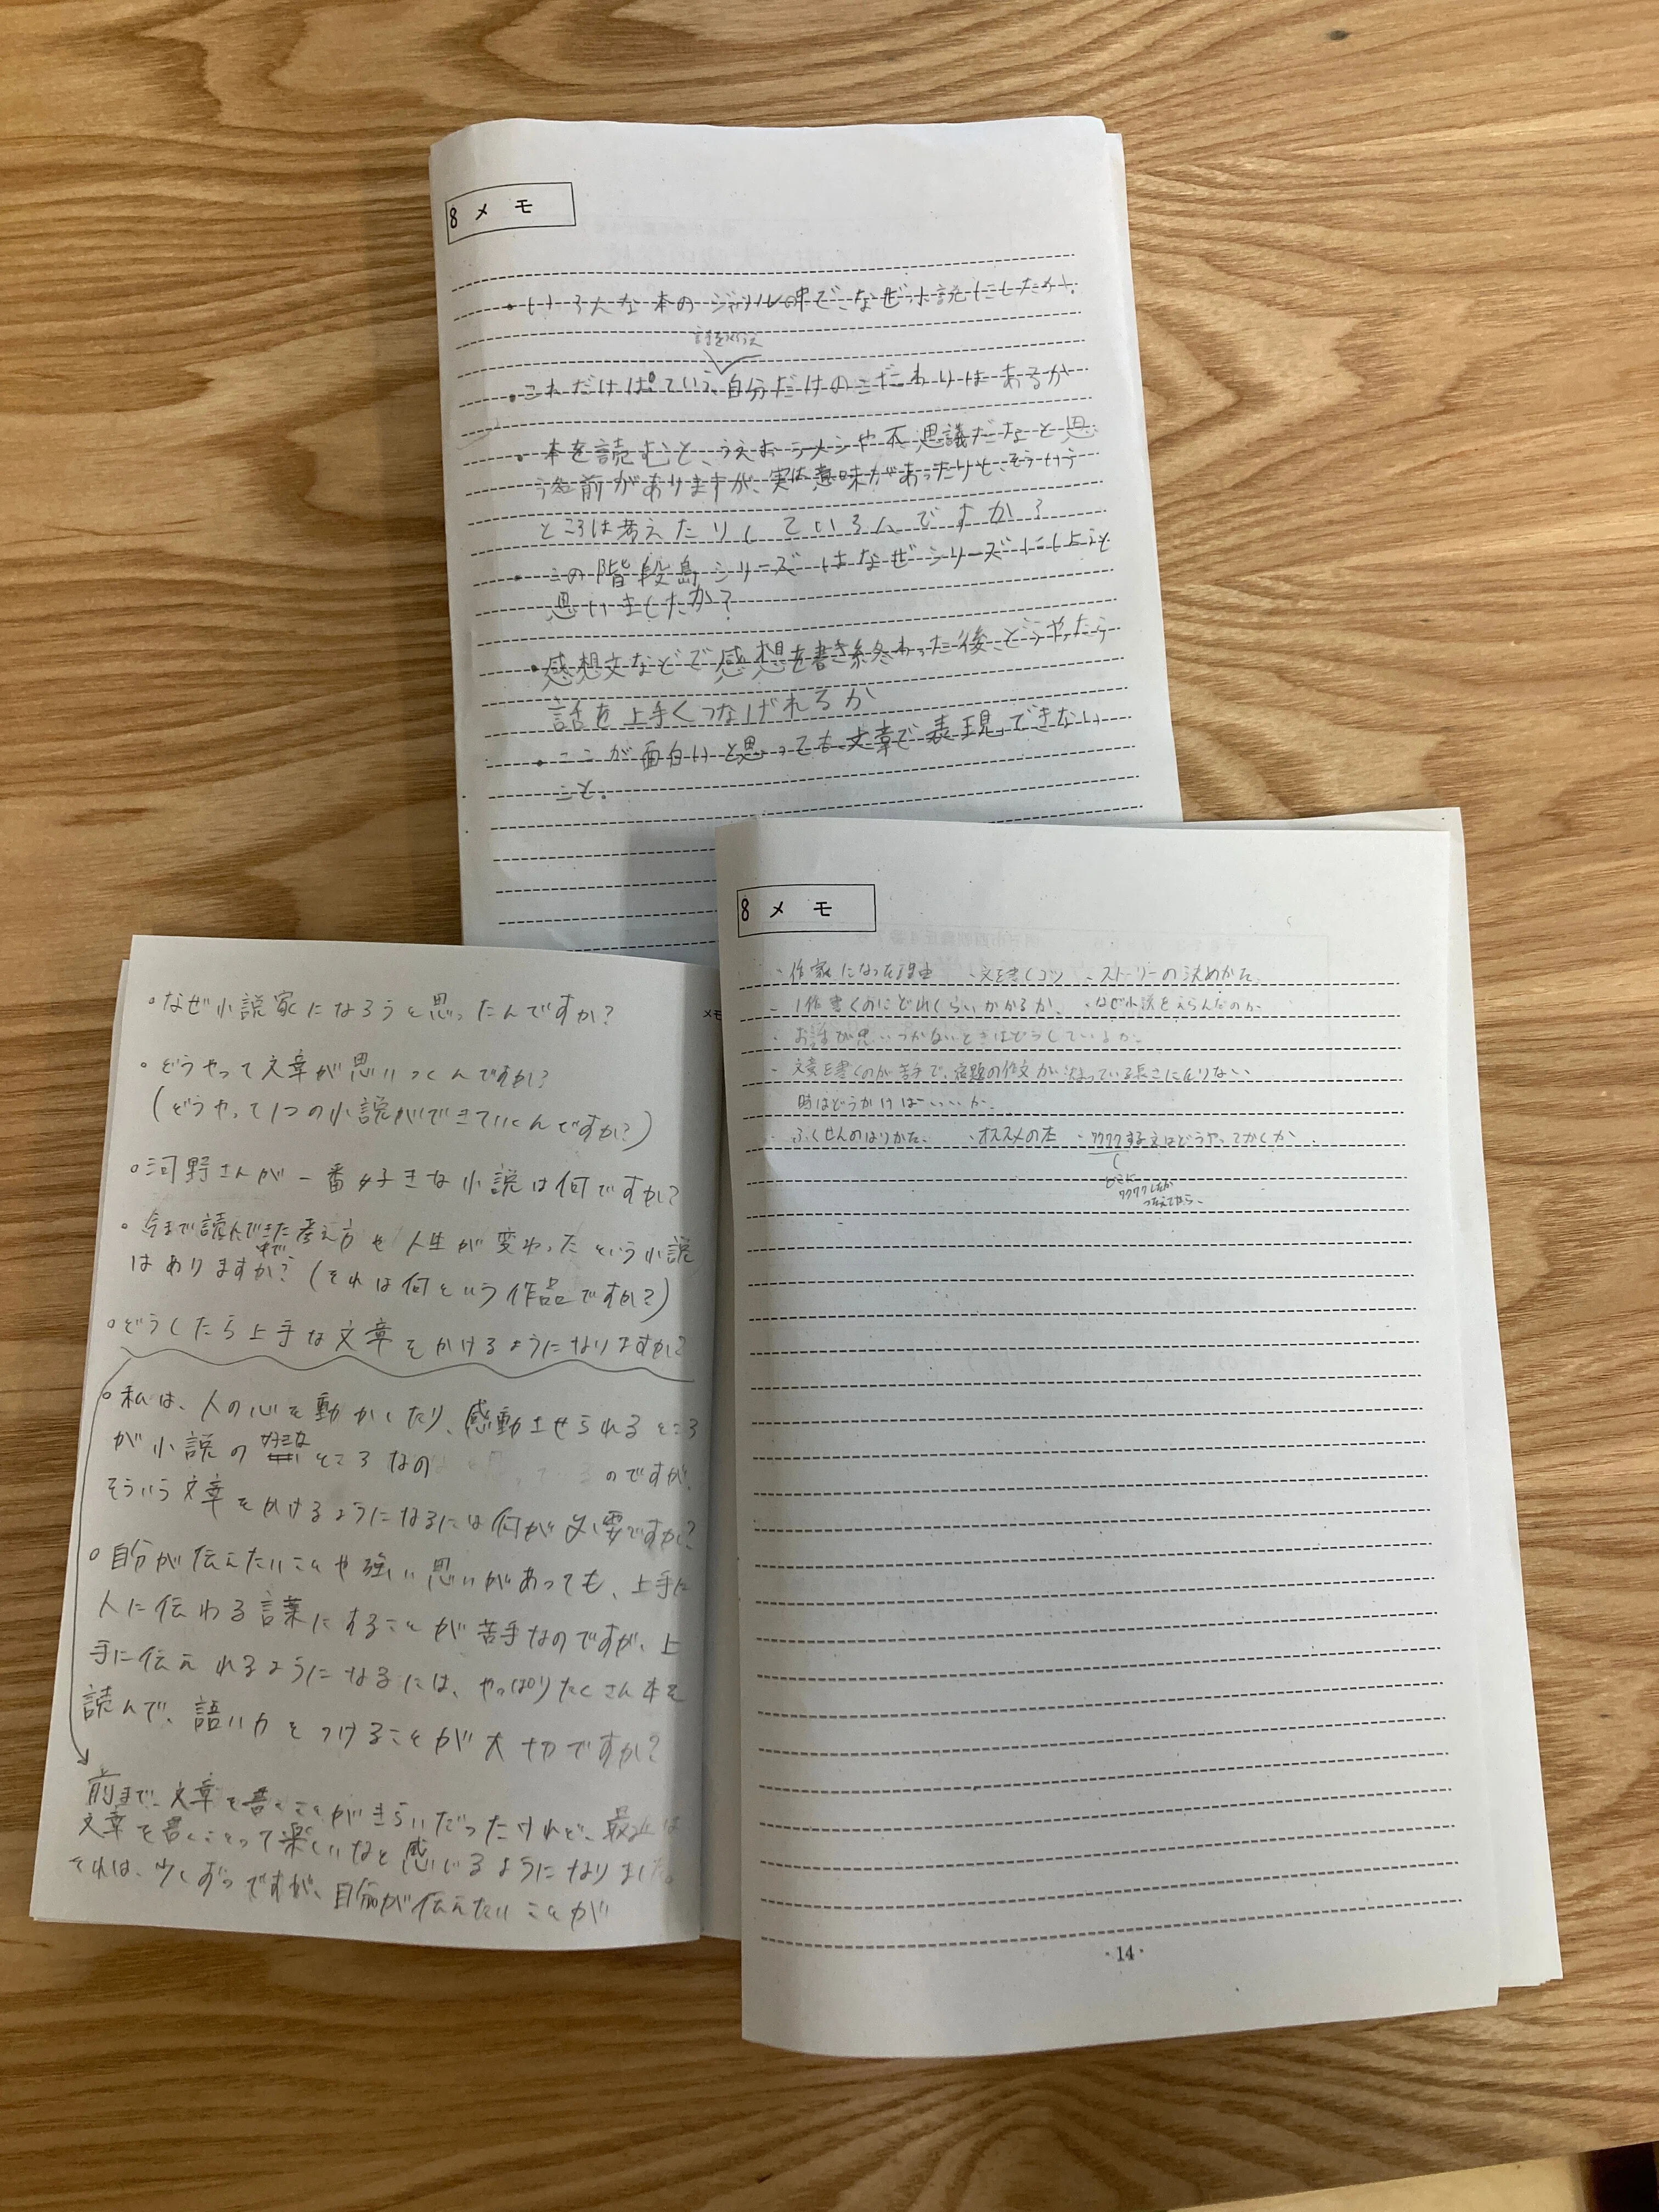 8 メモ
・いろんな本のジャンルの中でなぜ小説にしたか。
話をつくるうえ
・これだけは!ていう、自分だけのこだわりはあるか
・本を読むと、うえお ラーメンや不思議だなと思
う名前がありますが、実は意味があったりと、そういう
ところは考えたりしているんですか?
・この階段島シリーズはなぜシリーズにしようと
思いましたか?
・感想文などで感想を書き終わった後、どうやったら
話を上手くつなげれるか
・ここが面白いと思っても文章で表現できない
こと。
8 メモ
・作家になった理由 ・文を書くコツ ・ストーリーの決めかた
・1作書くのにどれくらいかかるか、 ・なぜ小説をえらんだのか
・お話が思いつかないときはどうしているか。
・文章を書くのが苦手で、宿題の作文が決まっている長さに足りない
時はどうかけばいいか。
・ふくせんのはりかた、 ・オススメの本 ・ワクワクする文はどうやってかくか
どこに
ワクワクしたか
つたえてから、
・14・
メモ
・なぜ小説家になろうと思ったんですか?
・どうやって文章が思いつくんですか?
(どうやって1つの小説ができていくんですか?)
・河野さんが一番好きな小説は何ですか?
・今まで読んできた中で、考え方や人生が変わったという小説
はありますか?(それは何という作品ですか?)
・どうしたら上手な文章をかけるようになりますか?
・私は、人の心を動かしたり、感動させられるところ
が小説の好きなところなのですが、
そういう文章をかけるようになるには何が必要ですか?
・自分が伝えたいことや強い思いがあっても、上手に
人に伝わる言葉にすることが苦手なのですが、上
手に伝えれるようになるには、やっぱりたくさん本を
読んで、語い力をつけることが大切ですか?
前まで、文章を書くことがきらいだったけれど、最近は
文章を書くことって楽しいなと感じるようになりました。
それは、少しずつですが、自分が伝えたいことが